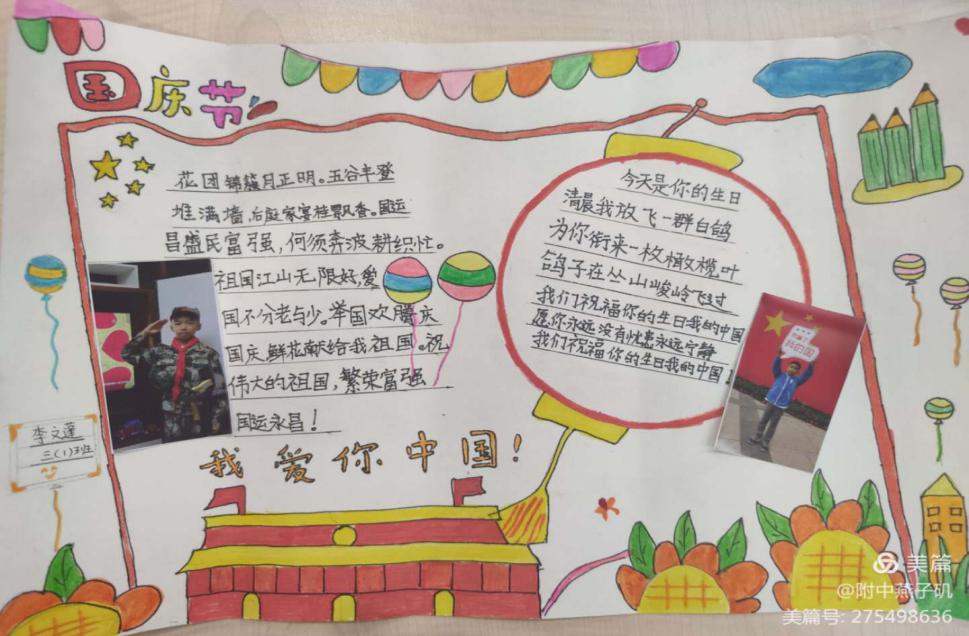 国庆节
花团锦簇月正明。五谷丰登
堆满墙，后庭家宴桂飘香。国运
昌盛民富强，何须奔波耕织忙。
祖国江山无限好，爱
国不分老与少。举国欢腾庆
国庆，鲜花献给我祖国。祝
伟大的祖国，繁荣富强
国运永昌！
今天是你的生日
清晨我放飞一群白鸽
为你衔来一枚橄榄叶
鸽子在丛山峻岭飞过
我们祝福你的生日我的中国
愿你永远没有忧患永远宁静
我们祝福你的生日我的中国！
我的国
李文莲
三(1)班
我爱你中国！
美篇
@附中燕子矶
美篇号: 275498636